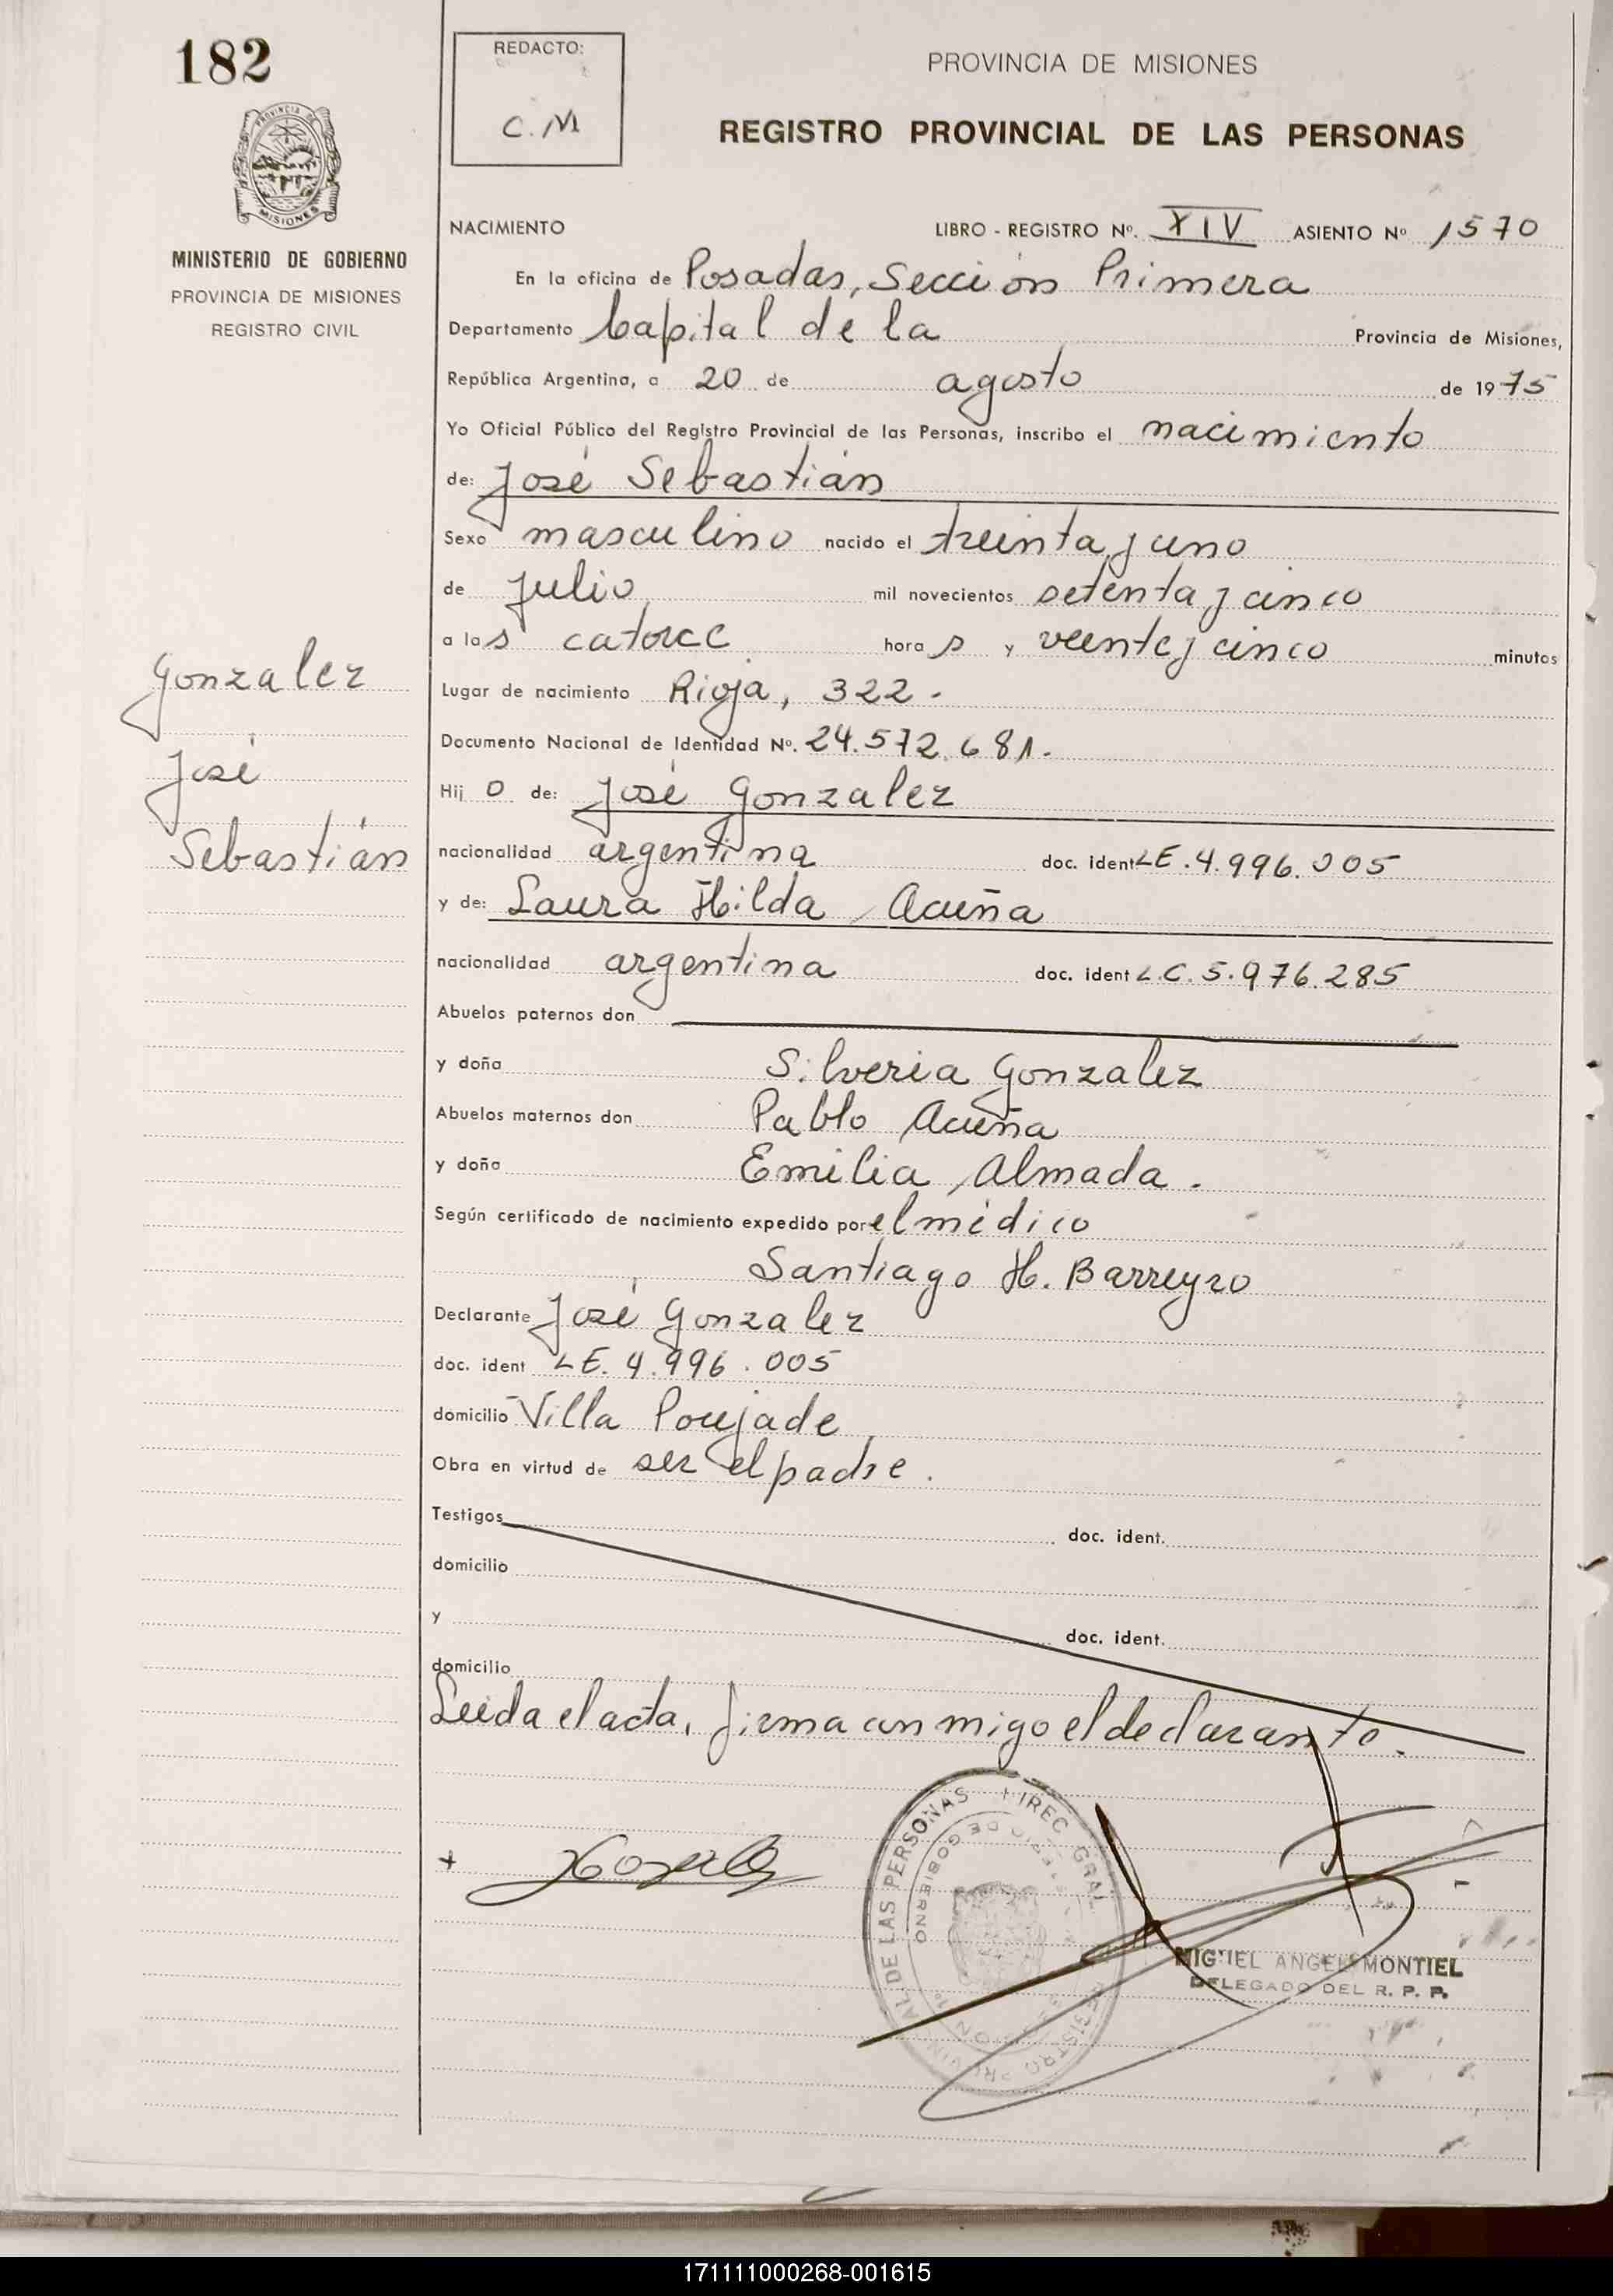 182
REDACTO:
C.M
PROVINCIA DE MISIONES
REGISTRO PROVINCIAL DE LAS PERSONAS
MISIONES
MINISTERIO DE GOBIERNO
PROVINCIA DE MISIONES
REGISTRO CIVIL
NACIMIENTO
LIBRO - REGISTRO Nº. XIV ASIENTO Nº 1570
En la oficina de Posadas, Sección Primera
Departamento Capital de la Provincia de Misiones,
República Argentina, a 20 de agosto de 1975
Yo Oficial Público del Registro Provincial de las Personas, inscribo el nacimiento
de: José Sebastián
Sexo masculino nacido el treinta y uno
de julio mil novecientos setenta y cinco
a las catorce horas y veinte y cinco minutos
Gonzalez
José
Sebastián
Lugar de nacimiento Rioja, 322.
Documento Nacional de Identidad Nº. 24.572.681.
Hijo de: José Gonzalez
nacionalidad argentina doc. ident LE. 4.996.005
y de: Laura Hilda Acuña
nacionalidad argentina doc. ident L.C. 5.976.285
Abuelos paternos don
y doña Silveria Gonzalez
Abuelos maternos don Pablo Acuña
y doña Emilia Almada.
Según certificado de nacimiento expedido por el médico
Santiago H. Barreyro
Declarante José Gonzalez
doc. ident LE. 4.996.005
domicilio Villa Poujade
Obra en virtud de ser el padre.
Testigos doc. ident.
domicilio
y doc. ident.
domicilio
Leida el acta, firma conmigo el declarante.
MIGUEL ANGEL MONTIEL
DELEGADO DEL R. P. P.
171111000268-001615